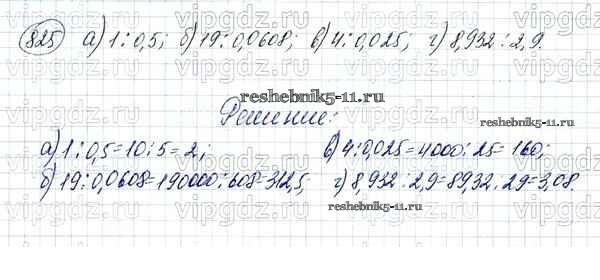 825 а) 1 : 0,5; б) 19 : 0,0608; в) 4 : 0,025; г) 8,932 : 2,9.
reshebnik5-11.ru
Решение: reshebnik5-11.ru
а) 1 : 0,5 = 10 : 5 = 2; в) 4 : 0,025 = 4000 : 25 = 160;
б) 19 : 0,0608 = 190000 : 608 = 312,5; г) 8,932 : 2,9 = 89,32 : 29 = 3,08.
vipgdz.ru vipgdz.ru vipgdz.ru vipgdz.ru